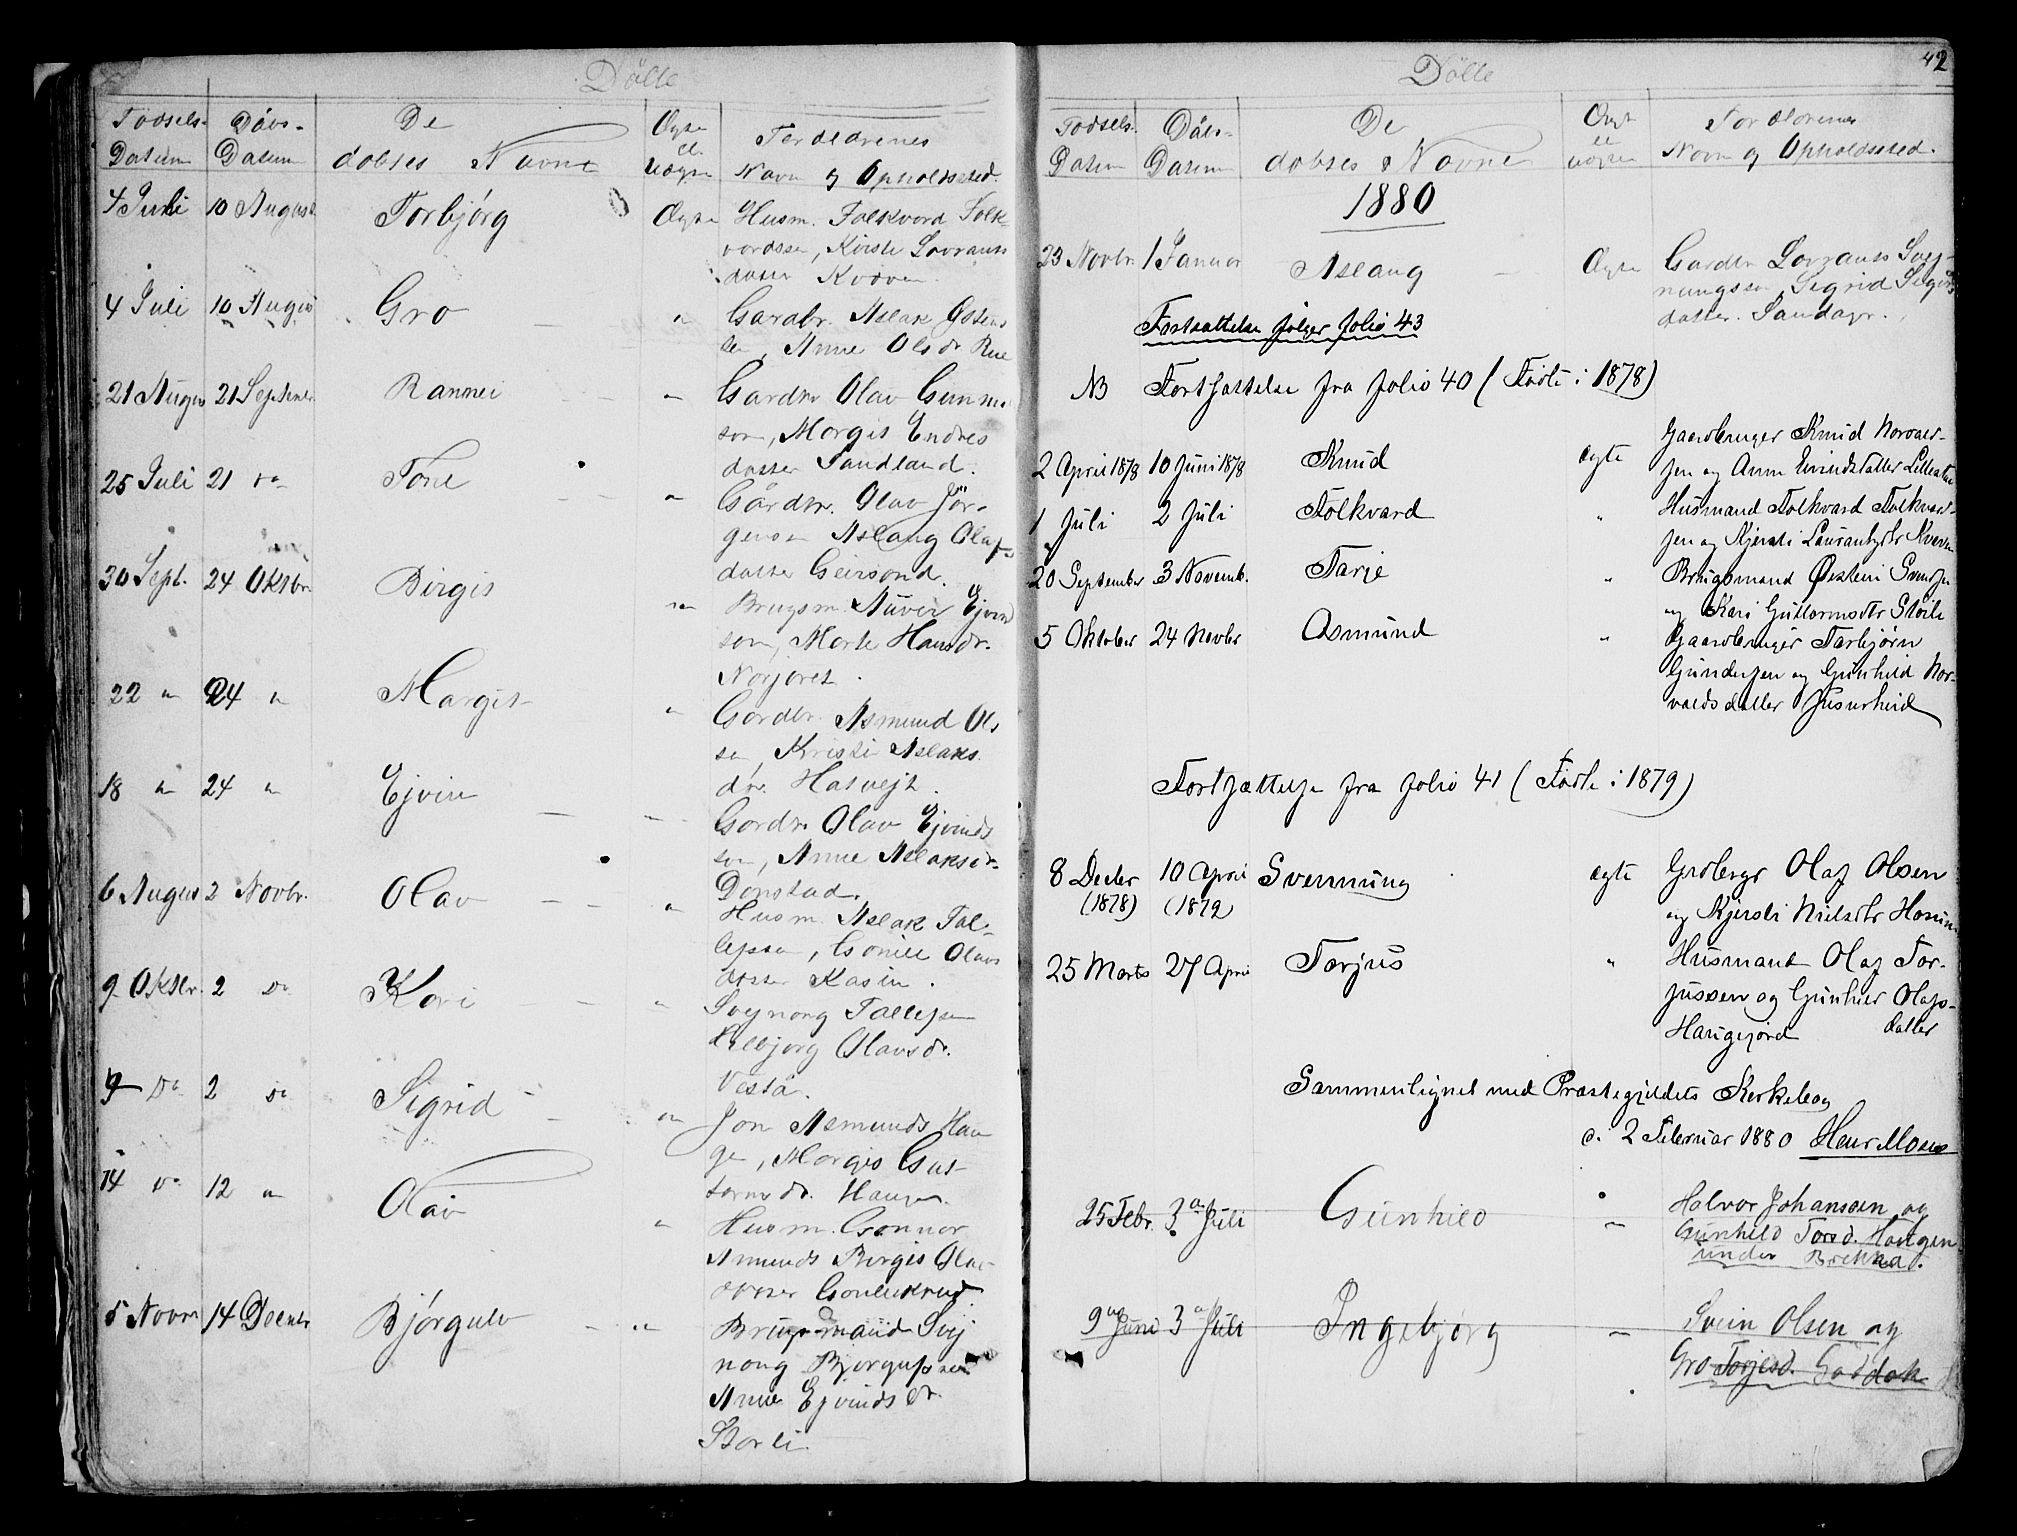 Döbte
Födsels- Döbs- De Ægte Forældrenes
Datum Datum döbtes Navne el. uægte Navn og Opholdssted.
4 Juli 10 August Torbjörg Ægte Husm. Folkvord Folk-
vordssen, Kirsti Lavrants
datter Kvöven
4 Juli 10 August Gro " Gardbr. Aslak Østens
sen, Anne Olsdr Rue
21 August 21 Septembr Rannei " Gardbr Olav Gunnar
son, Margit Endres
datter Sandland.
25 Juli 21 do Tone " Gårdbr. Olav Jör-
gensen Aslaug Olafs
datter Geirsond.
30 Sept. 24 Oktbr. Birgit " Brugsm. Auver Ejvind
son, Marte Hansdr.
Norjoret.
22 " 24 " Margit " Gardbr. Asmund Ols
sen, Kristi Aslaks
dr. Hatvejt.
18 " 24 " Ejvin " Gardbr Olav Ejvinds
son, Anne Aslaksdr
Donstad.
6 August 2 Novbr. Olav " Husm. Aslak Tal-
lefsen, Gonild Olavs
datter Kasin.
9 Oktbr. 2 do Kari " Svejnong Tallefsen
Ålbjorg Olavsdr.
Vestå.
9 do 2 do Sigrid " Jon Asmunds Hau
gen, Margit Gut-
tormsdr. Haugen.
14 do 12 " Olav " Husm. Gonnar
Amunds Birgit Olav-
datter Gonleikrud
5 Novbr 14 Decmbr Bjørgulv " Brugsmand Svej
nong Bjorgulfsen
Anne Ejvinds dr.
Storli.
42
Döbte
Födsels. Döbs- De Ægt Forældrenes
Datum Datum döbtes Navne el uægte Navn og Opholdssted.
1880
23 Novbr. 1 Januar Aslaug Ægte Gardbr Lavrants Svej-
nungssen, Sigrid Sigurds
datter. Sandager.
Fortsættelse følger folio 43
NB Fortsættelse fra folio 40 (Födte i 1878)
2 April 1878 10 Juni 1878 Knud ægte Gaardbruger Knud Norvald-
sen og Anne Eivindsdatter
1 Juli 2 Juli Folkvard " Husmand Folkvard Folkvard-
sen og Kjersti Laurantsdtr Kveven
20 September 3 Novemb. Tarje " Brugsmand Østein Svendsen
og Kari Guttormsdtr Stoile
5 Oktober 24 Novbr Asmund " Gaardbruger Tarbjørn
Gundersen og Gunhild Nor-
valdsdatter Husurheid
Fortsættelse fra folio 41 (Födte i 1879)
8 Decbr 10 April Svennung ægte Grdbrgr Olaf Olsen
(1878) (1879) og Kjersti Nielsdtr
25 Marts 27 April Tarjus " Husmand Olaf Tar-
jussen og Gunhild Olafs-
Haugefjord datter
Sammenlignet med Præstegjeldets Kirkebog
d. 2 Februar 1880 Henr Moses
25 Febr. 3 Juli Gunhild " Halvor Johansen og
Gunhild Torsd. Haugen
under Brekka.
9 Juni 3 Juli Ingebjørg " Svein Olsen og
Gro Torjesd. Goddok